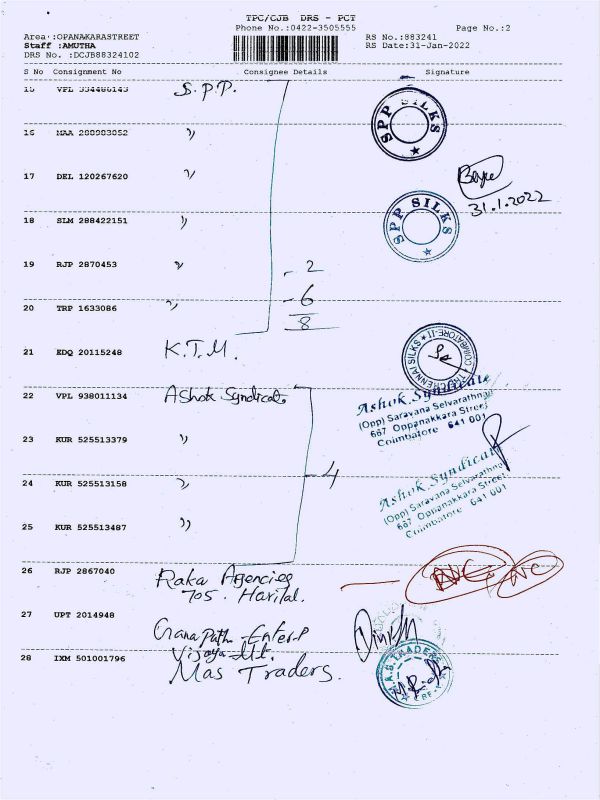 TPC/CJB DRS - PCT
Phone No.:0422-3505555 Page No.:2
Area :OPANAKARASTREET RS No.:883241
Staff :AMUTHA RS Date:31-Jan-2022
DRS No. :DCJB88324102
S No Consignment No Consignee Details Signature
15 VPL 334486143 S.P.P. SPP SILKS
16 MAA 288983052 ,,
17 DEL 120267620 ,,
31.1.2022
18 SLM 288422151 ,, SPP SILKS
19 RJP 2870453 ,, - 2
20 TRP 1633086 ,, - 6
8
21 EDQ 20115248 K.T.M. CHENNAI SILKS COIMBATORE-II
22 VPL 938011134 Ashok Syndicate Ashok Syndicate
(Opp) Saravana Selvarathna
667 Oppanakkara Street
Coimbatore 641 001
23 KUR 525513379 ,,
24 KUR 525513158 ,, - 4 Ashok Syndicate
(Opp) Saravana Selvarathna
667 Oppanakkara Street
Coimbatore 641 001
25 KUR 525513487 ,,
26 RJP 2867040 Raka Agencies
705. Harilal.
27 UPT 2014948 Ganapathi Enterp
Vijaya Mt.
28 IXM 501001796 Mas Traders. M.A.S. TRADERS CBE-1